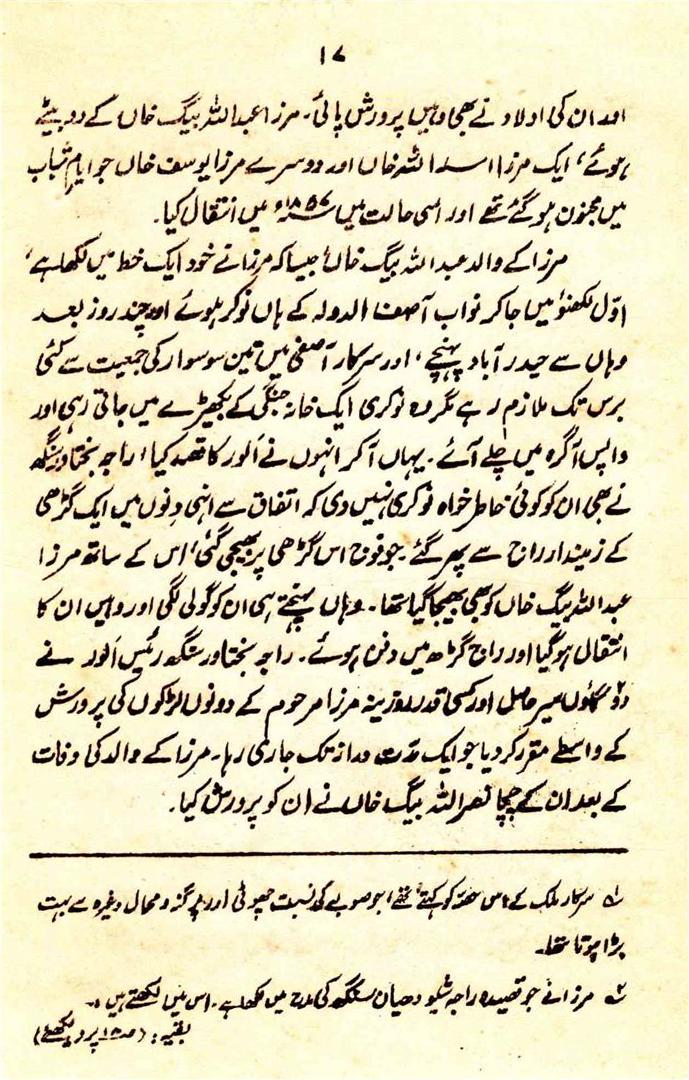 ۱۷
اور ان کی اولاد نے بھی وہیں پرورش پائی۔ مرزا عبداللہ بیگ خاں کے دو بیٹے
ہوئے، ایک مرزا اسد اللہ خاں اور دوسرے مرزا یوسف خاں جو ایامِ شباب
میں مجنون ہو گئے تھے اور اسی حالت میں ۱۸۵۷ء میں انتقال کیا۔
مرزا کے والد عبداللہ بیگ خاں، جیسا کہ مرزا نے خود ایک خط میں لکھا ہے،
اوّل لکھنؤ میں جا کر نواب آصف الدولہ کے ہاں نوکر ہوئے اور چند روز بعد
وہاں سے حیدر آباد پہنچے، اور سرکار آصفی میں تین سو سوار کی جمعیت سے کئی
برس تک ملازم رہے مگر وہ نوکری ایک خانہ جنگی کے بکھیڑے میں جاتی رہی اور
واپس آگرہ میں چلے آئے۔ یہاں آ کر انہوں نے اَلور کا قصد کیا، راجہ بختاور سنگھ
نے بھی ان کو کوئی خاطر خواہ نوکری نہیں دی کہ اتفاق سے انہی دِنوں میں ایک گڑھی
کے زمیندار راج سے پھر گئے۔ جو فوج اس گڑھی پر بھیجی گئی، اس کے ساتھ مرزا
عبداللہ بیگ خاں کو بھی بھیجا گیا تھا۔ وہاں پہنچتے ہی ان کو گولی لگی اور وہیں ان کا
انتقال ہو گیا اور راج گڑھ میں دفن ہوئے۔ راجہ بختاور سنگھ رئیس اَلور نے
دو گاؤں سیر حاصل اور کسی قدر روزینہ مرزا مرحوم کے دونوں لڑکوں کی پرورش
کے واسطے مقرر کر دیا جو ایک مدّت دراز تک جاری رہا۔ مرزا کے والد کی وفات
کے بعد ان کے چچا نصراللہ بیگ خاں نے ان کو پرورش کیا۔
۱؎ سرکار ملک کے اس حصّہ کو کہتے تھے، جو صوبے کی نسبت چھوٹی اور پرگنہ و محال وغیرہ سے بہت
بڑا ہوتا تھا۔
۲؎ مرزا نے جو قصیدہ راجہ شیو دھیان سنگھ کی مدح میں لکھا ہے۔ اس میں لکھتے ہیں :۔
بقیہ: (صہ ۱۸ پر دیکھئے)